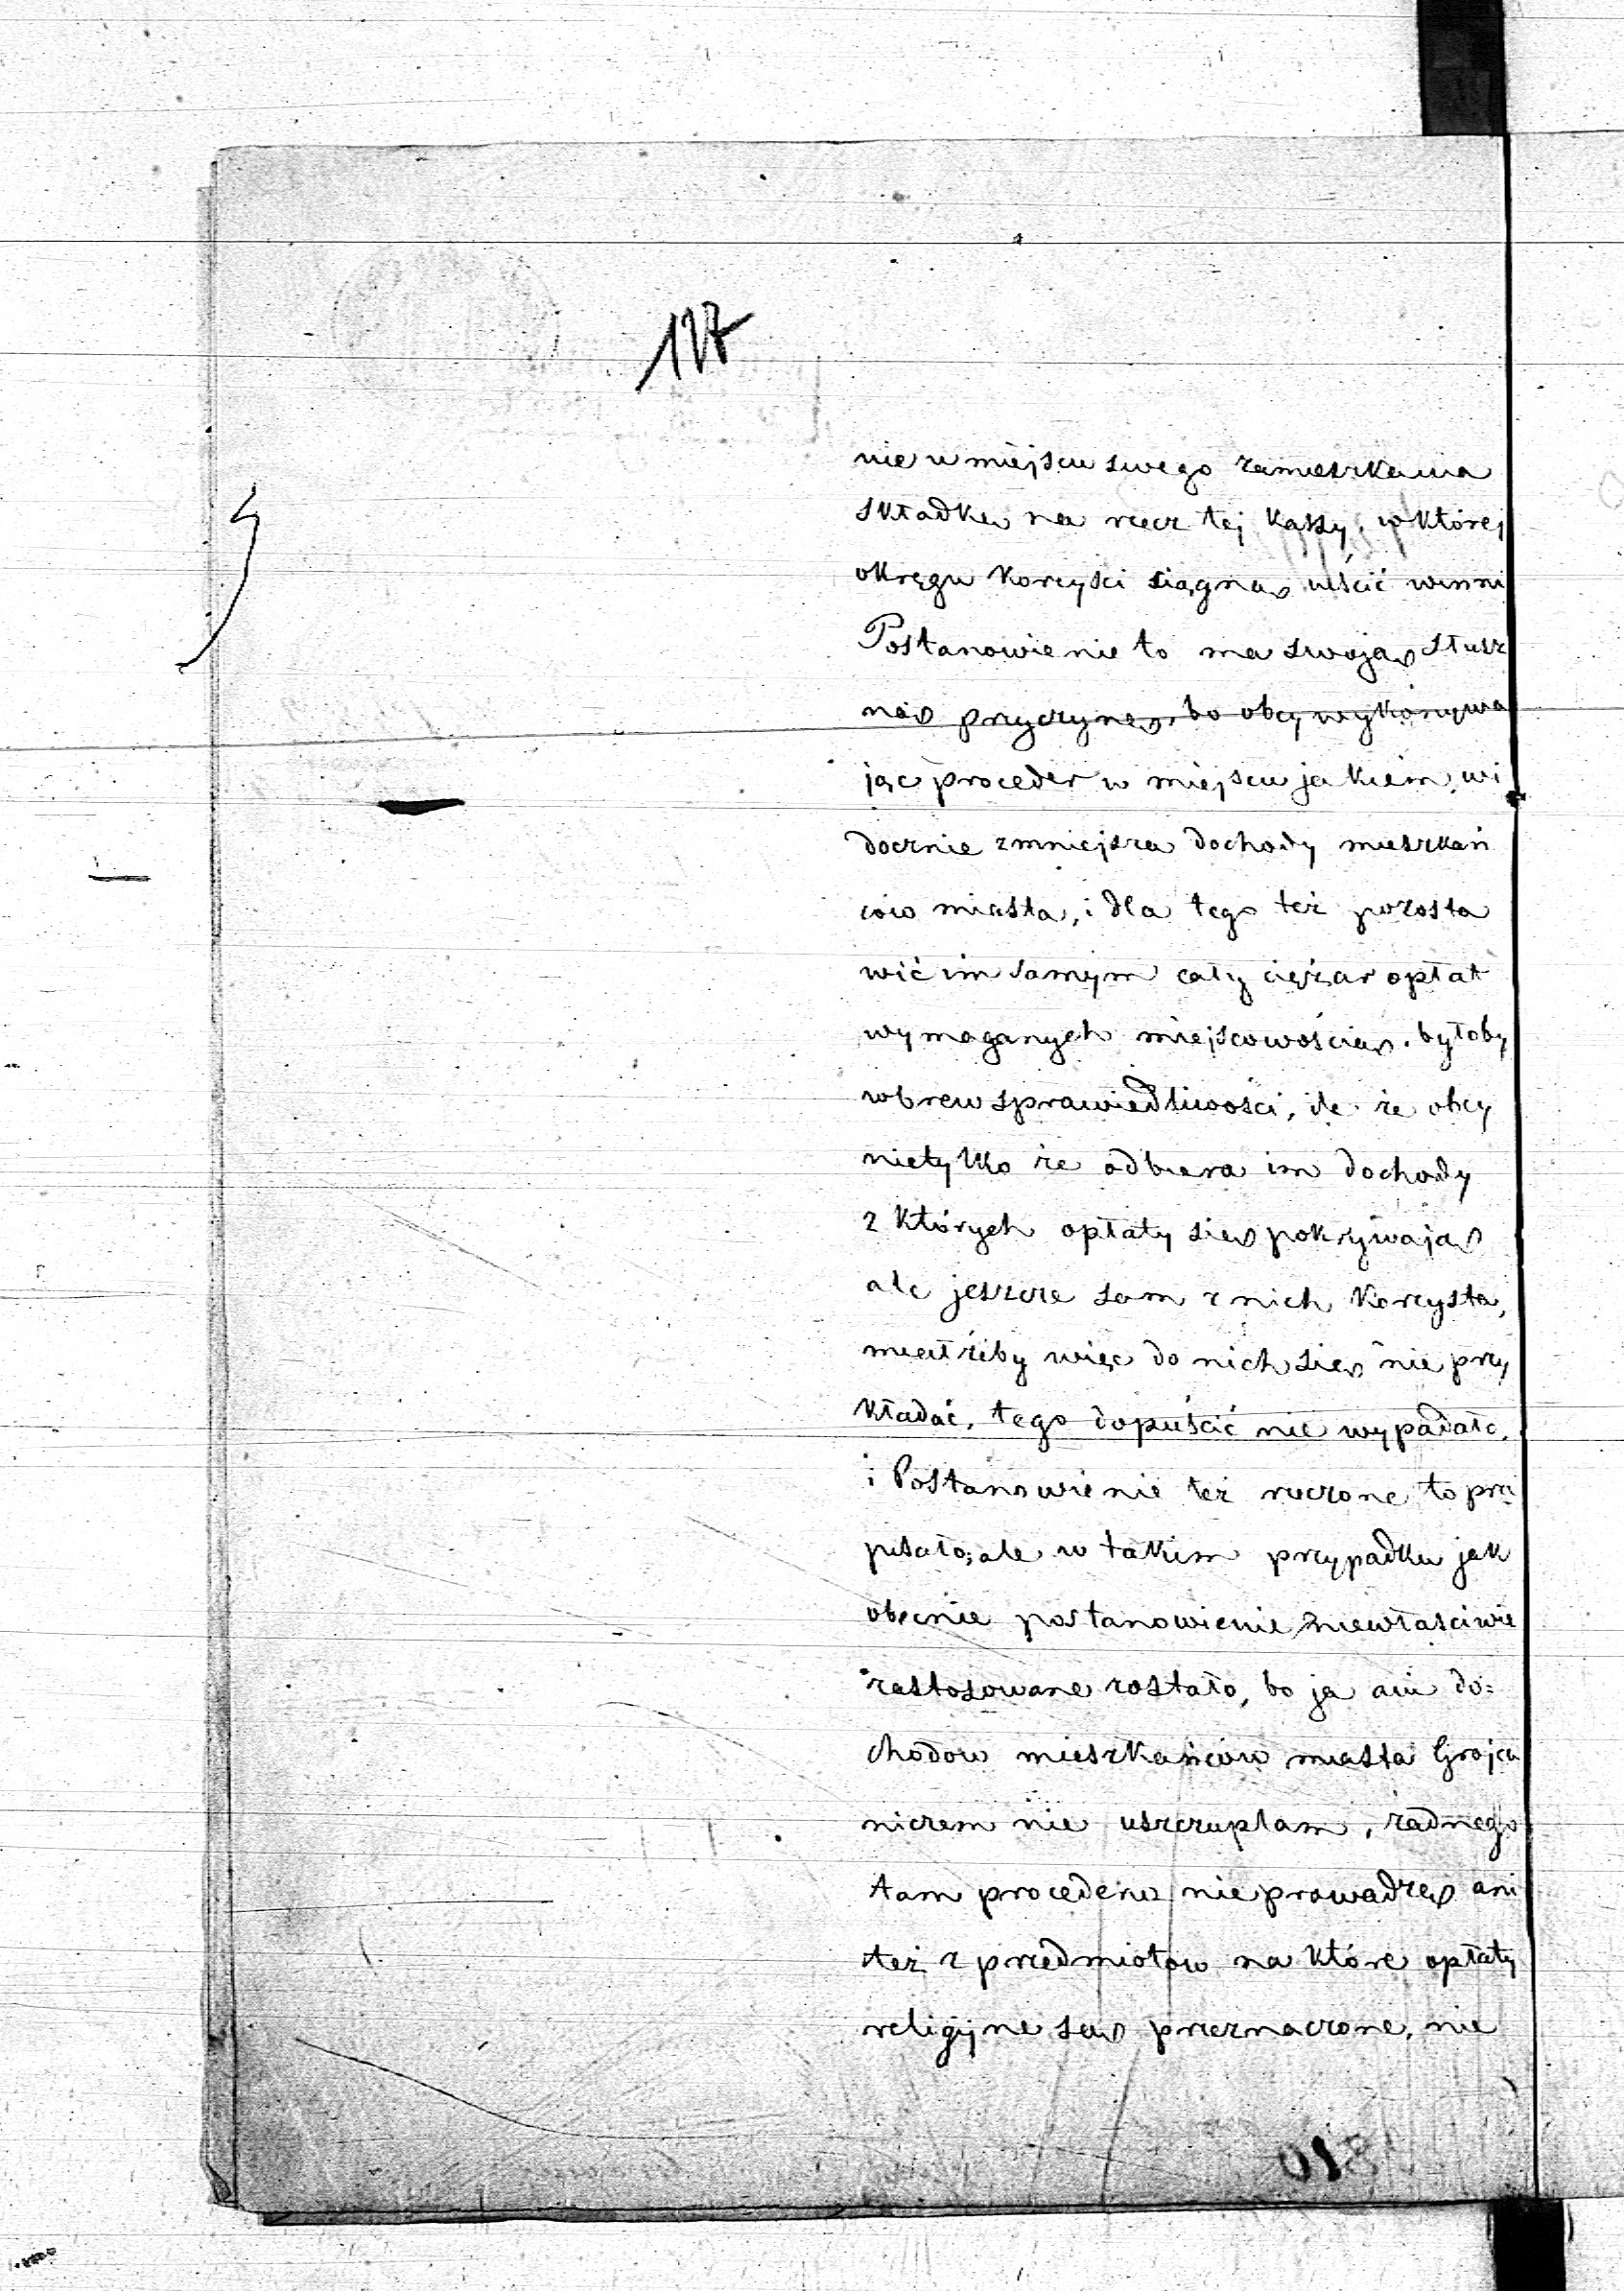 117
nie w miejscu swego zamieszkania
składkę na rzecz tej kassy, w której
okręgu korzyści ciągną, uiścić winni
Postanowienie to ma swoją słusz
ną przyczynę, bo obcy wykonywa
jąc proceder w miejscu jakiem, wi
docznie zmniejsza dochody mieszkań
ców miasta, i dla tego też pozosta
wić im samym cały ciężar opłat
wymaganych miejscowością, byłoby
wbrew sprawiedliwości, ile że obcy
nietylko że odbiera im dochody
z których opłaty się pokrywają
ale jeszcze sam z nich korzysta,
miałżeby więc do nich się nie przy
kładać, tego dopuścić nie wypadało,
i Postanowienie też rzeczone to prze
pisało; ale w takim przypadku jak
obecnie postanowienie niewłaściwie
zastosowane zostało, bo ja ani do=
chodow mieszkańców miasta Grojca
niczem nie uszczuplam, żadnego
tam procederu nie prowadzę, ani
też z przedmiotow na które opłaty
religijne są przeznaczone, nie